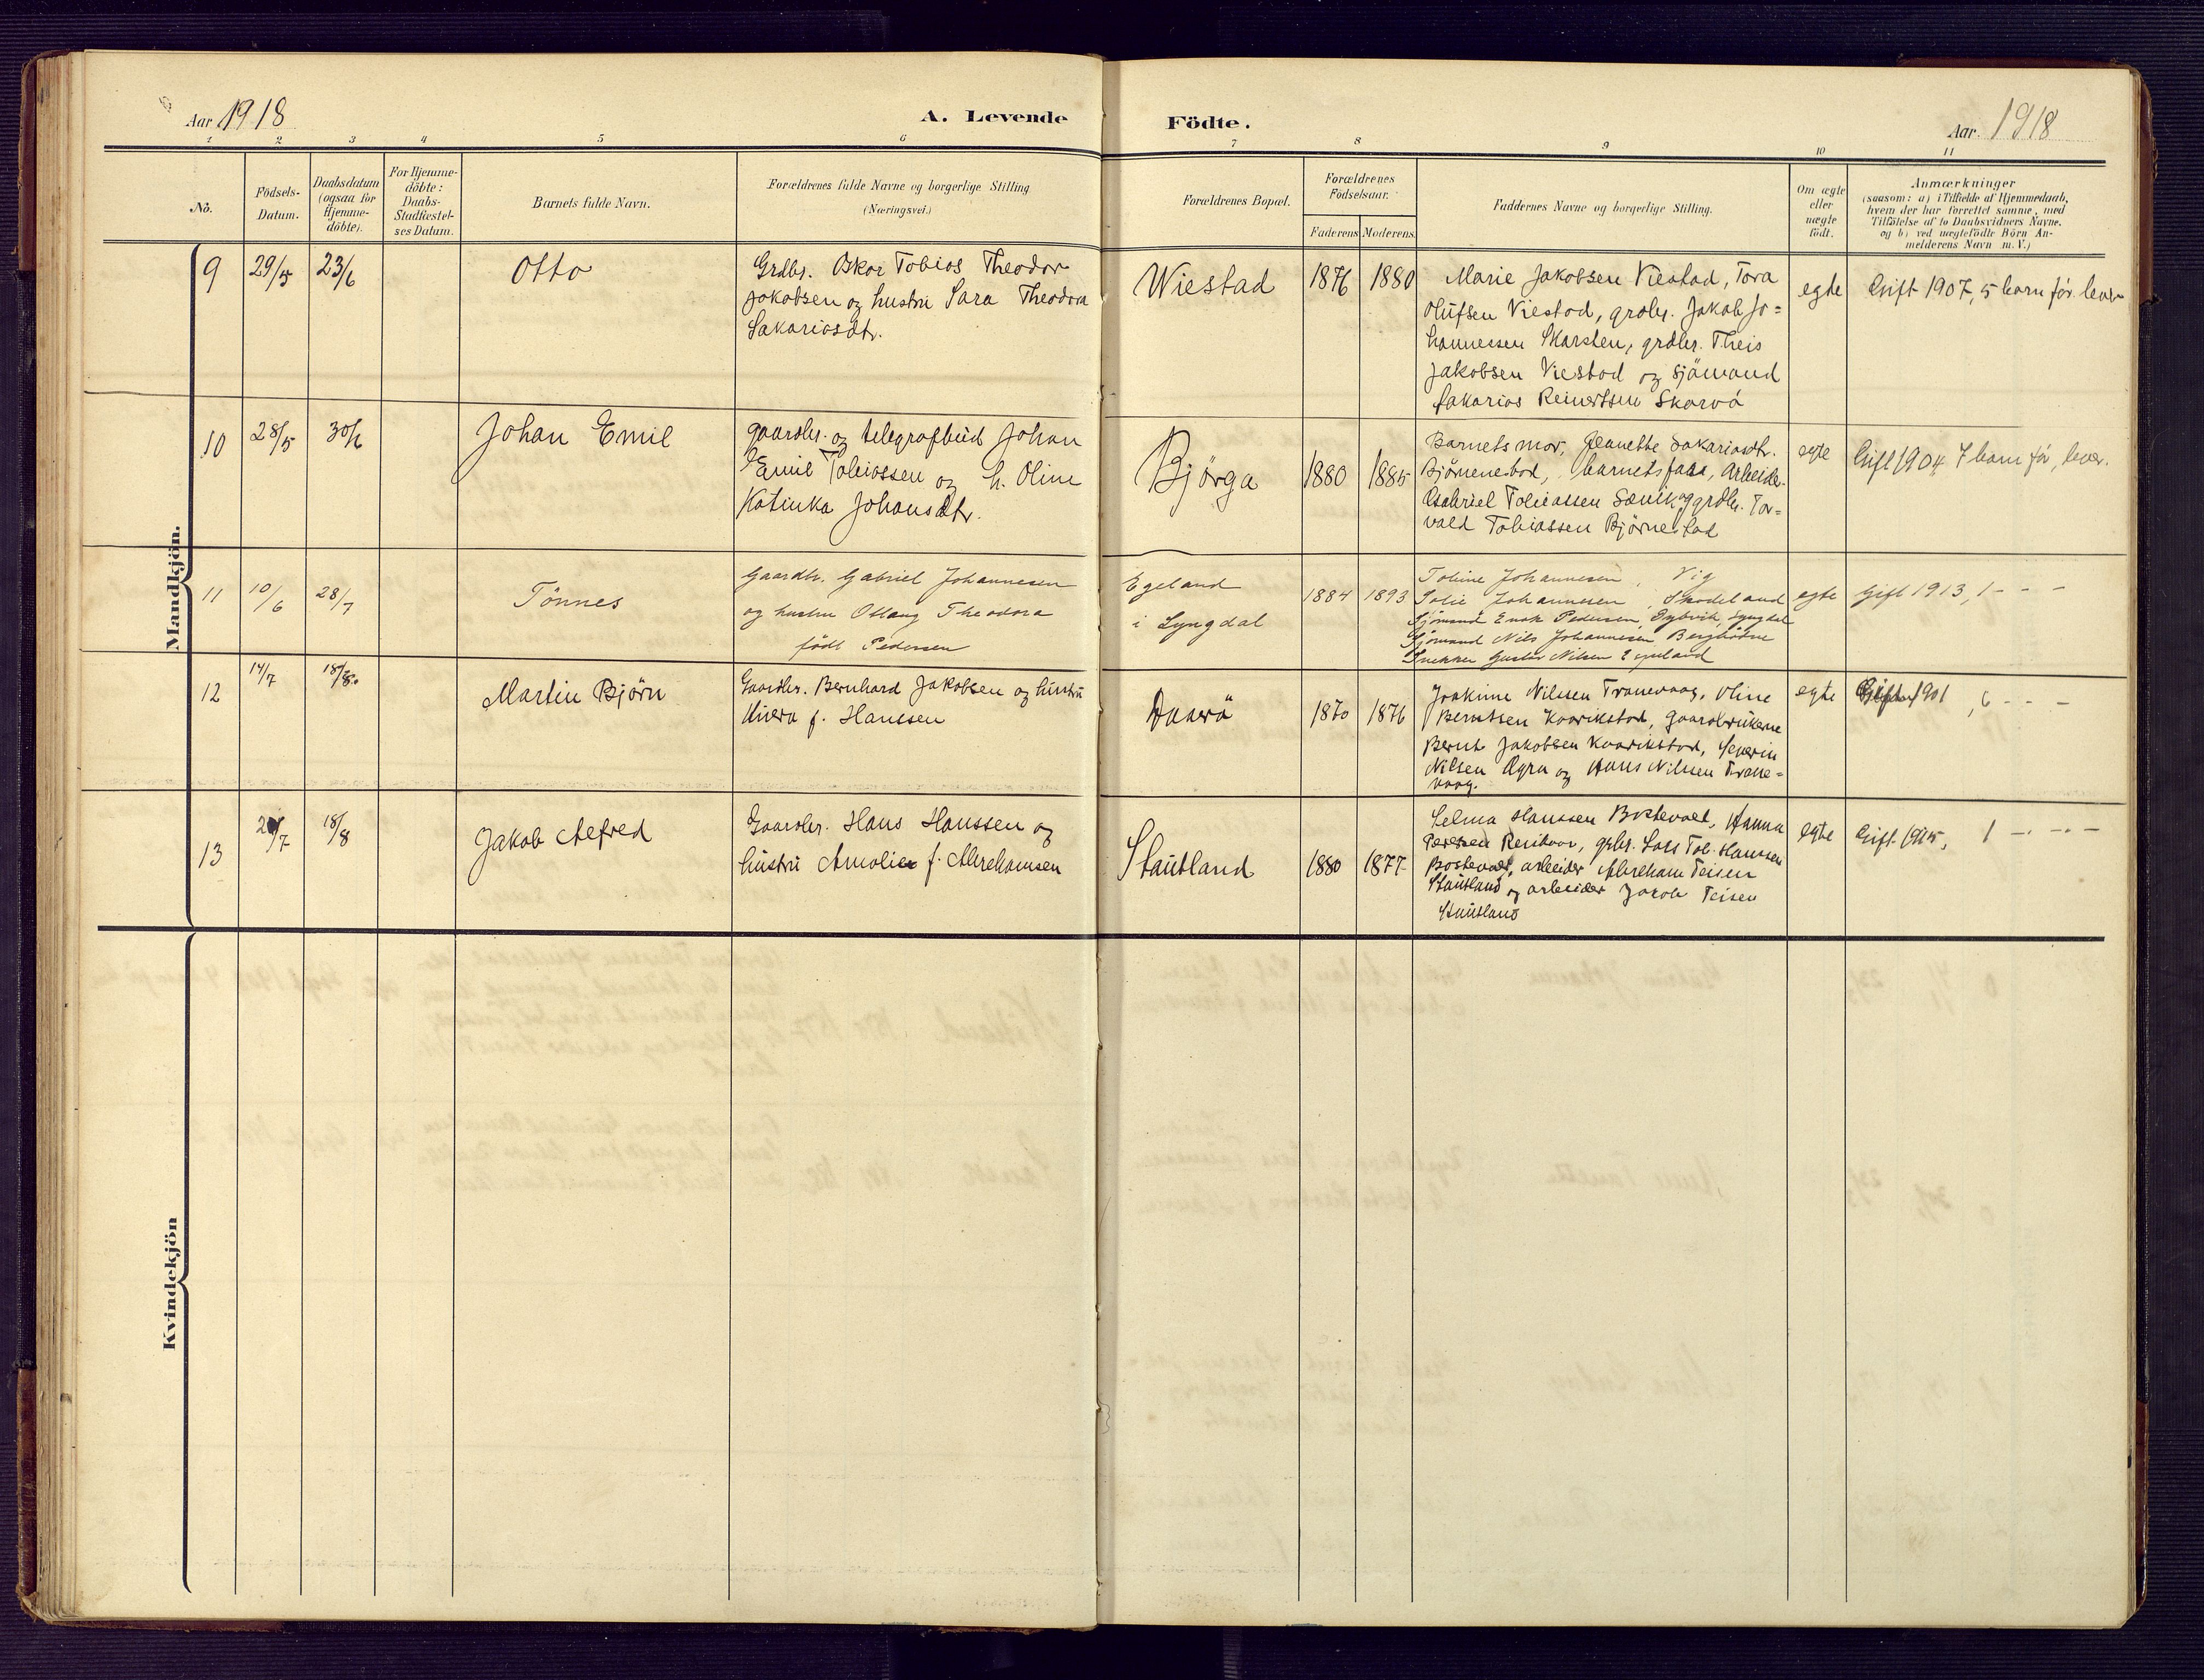 Aar 1918
A. Levende
Födte.
Aar. 1918
1 2 3 4 5 6 7 8 9 10 11
No.
Födsels-
Datum.
Daabsdatum
(ogsaa for
Hjemme-
döbte).
For Hjemme-
döbte:
Daabs-
Stadfæstel-
ses Datum.
Barnets fulde Navn.
Forældrenes fulde Navne og borgerlige Stilling
(Næringsvei.)
Forældrenes Bopæl.
Forældrenes
Födselsaar.
Faderens Moderens
Faddernes Navne og borgerlige Stilling.
Om ægte
eller
uægte
födt.
Anmærkninger
(saasom: a) i Tilfælde af Hjemmedaab,
hvem der har forrettet samme, med
Tilföielse af to Daabsvidners Navne.
og b) ved uægtefödte Börn An-
melderens Navn m. V.)
Mandkjön.
9
29/5
23/6
Otto
Grdbr. Oskar Tobias Theodor
Jakobsen og hustru Sara Theodora
Sakariasdtr.
Wiestad
1876
1880
Marie Jakobsen Viestad, Tora
Olufsen Viestad, grdbr. Jakob Jo=
hannessen Skarsten, grdbr. Theis
Jakobsen Viestad og sjömand
Sakarias Reinertsen Skarvö
egte
Gift 1907, 5 barn før. lever
10
28/5
30/6
Johan Emil
gaardbr. og telegrafbud Johan
Emil Tobiassen og h. Oline
Katinka Johansdtr.
Björga
1880
1885
Barnets mor, Jeanette Sakariasdtr.
Bjørnestad, barnets fara, Arbeider
Gabriel Tobiassen og grdbr. Tor=
vald Tobiassen Björnestad
egte
Gift 1904 7 barn før, lever.
11
10/6
28/7
Tönnes
Gaardbr. Gabriel Johannesen
og hustru Otlaug Theodora
født Pedersen
Egeland
i Lyngdal
1884
1893
Tobine Johannesen, Vig
Johannesen, Skodeland
Sjömand Enok Pedersen, Dybvik, Lyngdal
Sjömand Nils Johannesen
Snekker Gustav Nilsen Egeland
egte
Gift 1913, 1 - - -
12
14/7
18/8.
Martin Björn
Gaardbr. Bernhard Jakobsen og hustru
f. Hanssen
1870
1876
Joakime Nilsen Tranevaag, Oline
Berntsen Kvavikstad, gaardbrukerne
Bernt Jakobsen Kvavikstad, Severin
Nilsen og Hans Nilsen Trane=
vaag.
egte
Gift 1901, 6 - - -
13
18/8
Jakob Alfred
Gaardbr. Hans Hanssen og
hustru Amalie f. Abrahamsen
Stautland
1880
1877
Selma Hanssen Bostevoet, Hanna
gbr. Lars Tob. Hanssen
arbeider Abraham Teisen
Stautland og arbeider Jakob Teisen
Stautland
egte
Gift. 1915, 1 - - -
Kvindekjön